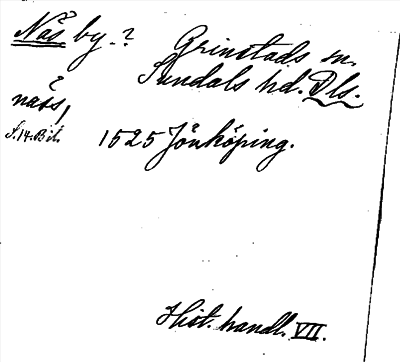 Näs by.?
Grinstads sn.
Sundals hd. Dls.
nass,
S. 14. Bil. 1525 Jönköping.
Hist. handl. VII.